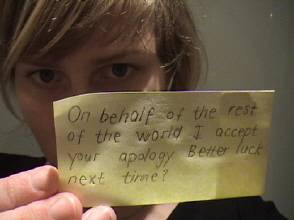 On behalf of the rest
of the world I accept
your apology Better luck
next time?